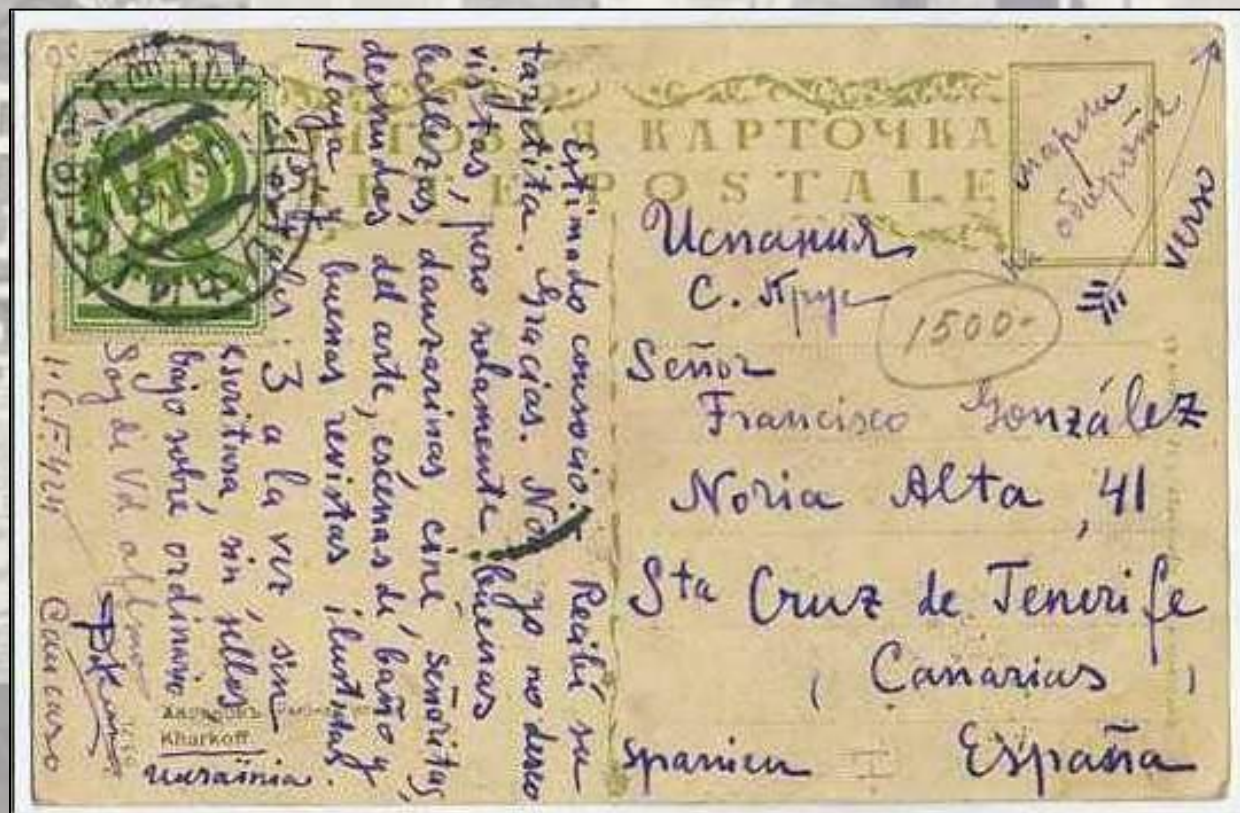 КАРТОЧКА
POSTALE
на
марки
обороте
verso
Испания
С. Круc
1500-
Señor
Francisco González
Noria Alta, 41
Sta Cruz de Tenerife
( Canarias )
Spanien I España
Estimado consocio: Recibí su
tarjetita. Gracias. No, yo no deseo
vistas, pero solamente buenas
bellezas, danzarinas, cine, señoritas,
desnudos del arte, escenas de baño y
playa y buenas revistas ilustradas.
3 a la vez, sin
escritura, sin sellos
bajo sobre ordinario
Soy de Vd
Kharkoff
Ucrainia.